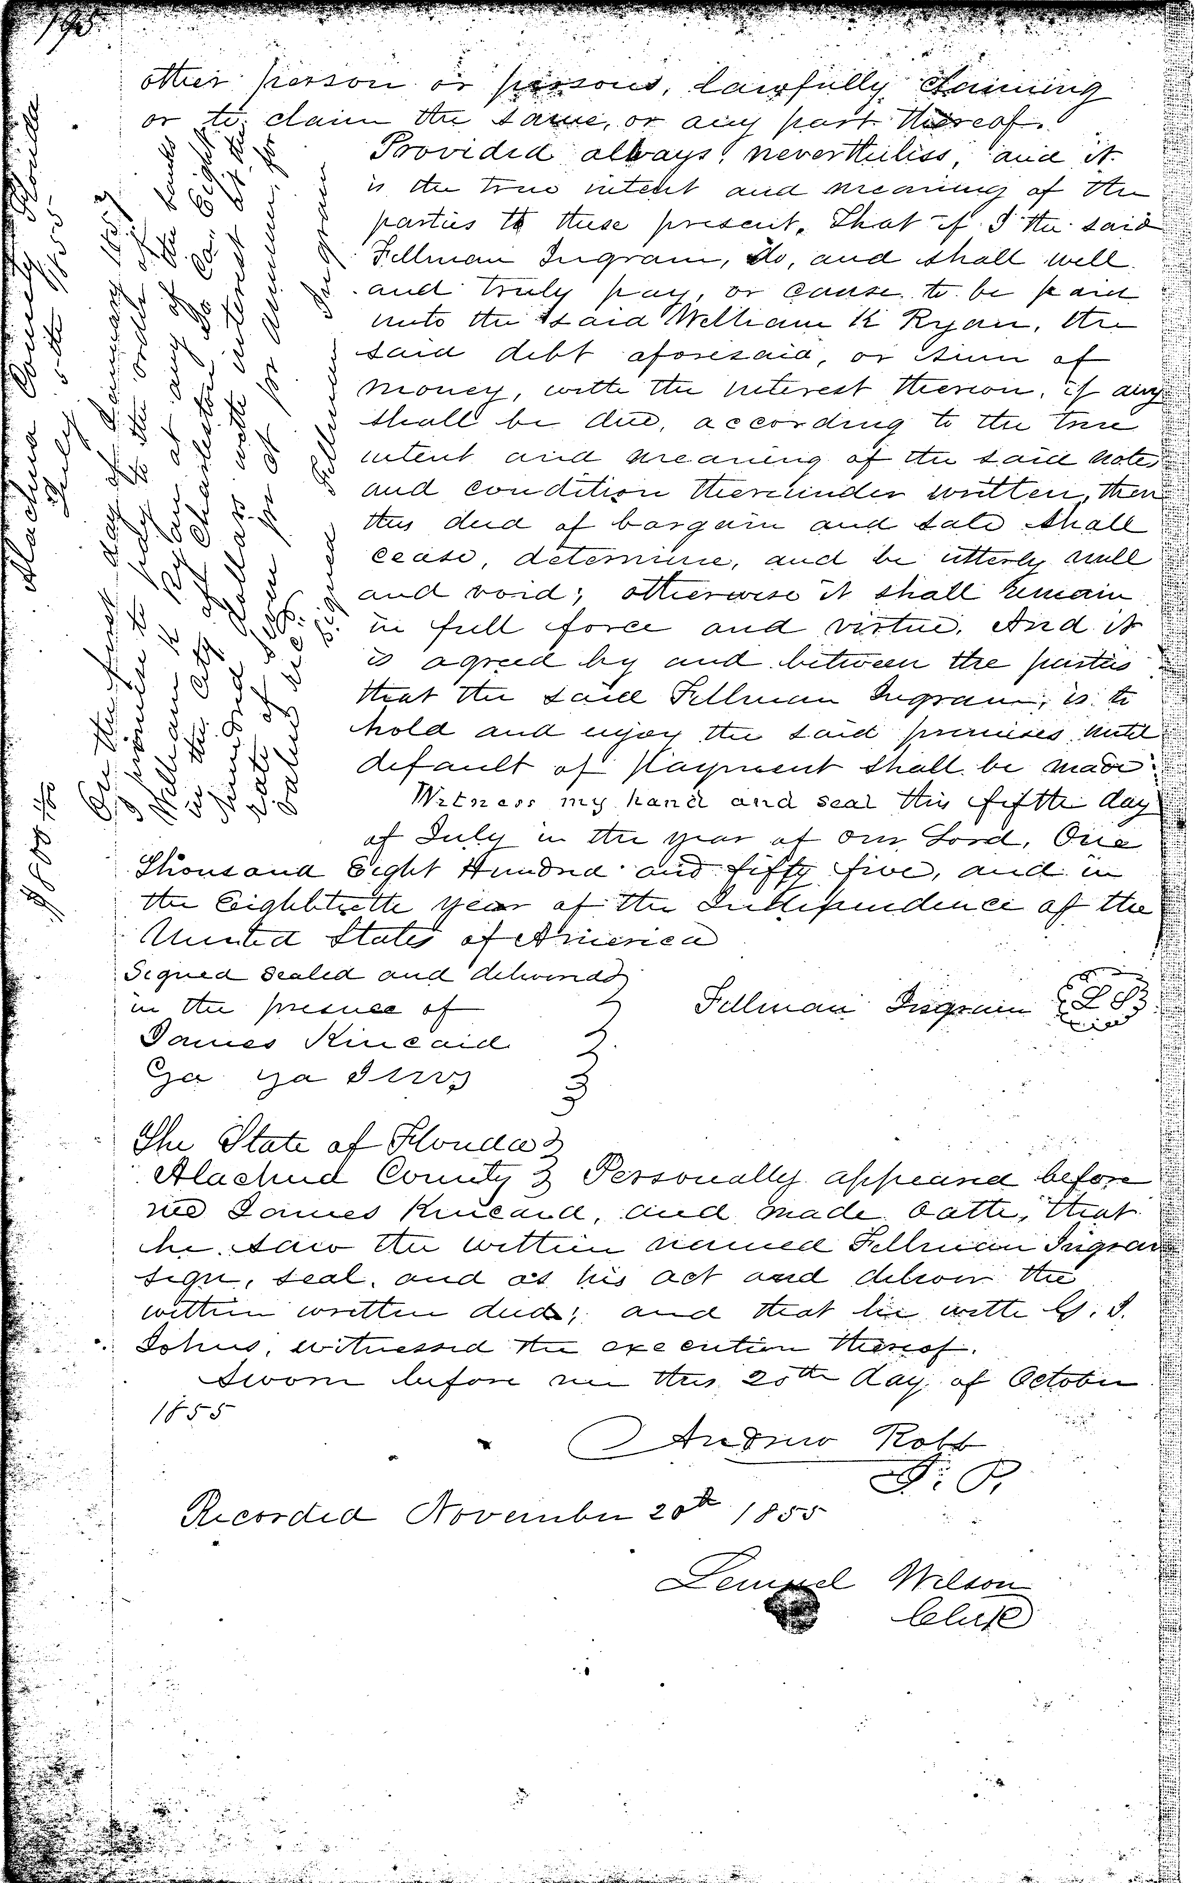 195
other person or persons, lawfully claiming
or to claim the same, or any part thereof.
Provided always, nevertheless, and it
is the true intent and meaning of the
parties to these present, That if I the said
Fillman Ingram, do, and shall well
and truly pay, or cause to be paid
unto the said William K Ryan, the
said debt aforesaid, or sum of
money, with the interest thereon, if any
shall be due, according to the true
intent and meaning of the said note
and condition thereunder written, then
this deed of bargain and sale shall
cease, determine, and be utterly null
and void; otherwise it shall remain
in full force and virtue. And it
is agreed by and between the parties
that the said Fillman Ingram, is to
hold and enjoy the said premises until
default of payment shall be made
Witness my hand and seal this fifth day
of July in the year of our Lord, One
Thousand Eight Hundred and fifty five, and in
the Eightieth year of the Independence of the
United States of America
Signed sealed and delivered
in the presence of
James Kincaid
Fillman Ingram LS
The State of Florida
Alachua County Personally appeared before
me James Kincaid, and made oath, that
he saw the within named Fillman Ingram
sign, seal, and as his act and deliver the
within written deed; and that he with G. I.
Johns, witnessed the execution thereof.
Sworn before me this 20th day of October
1855
Andrew Robb
J. P.
Recorded November 20th 1855
Lemuel Wilson
Clerk
$800 00/100
Alachua County Florida
July 5th 1855
On the first day of January 1857
I promise to pay to the order of
William K Ryan at any of the banks
in the City of Charleston So Ca. Eight
Hundred dollars with interest at the
rate of seven pr ct pr annum, for
value rec.d
Signed Fillman Ingram